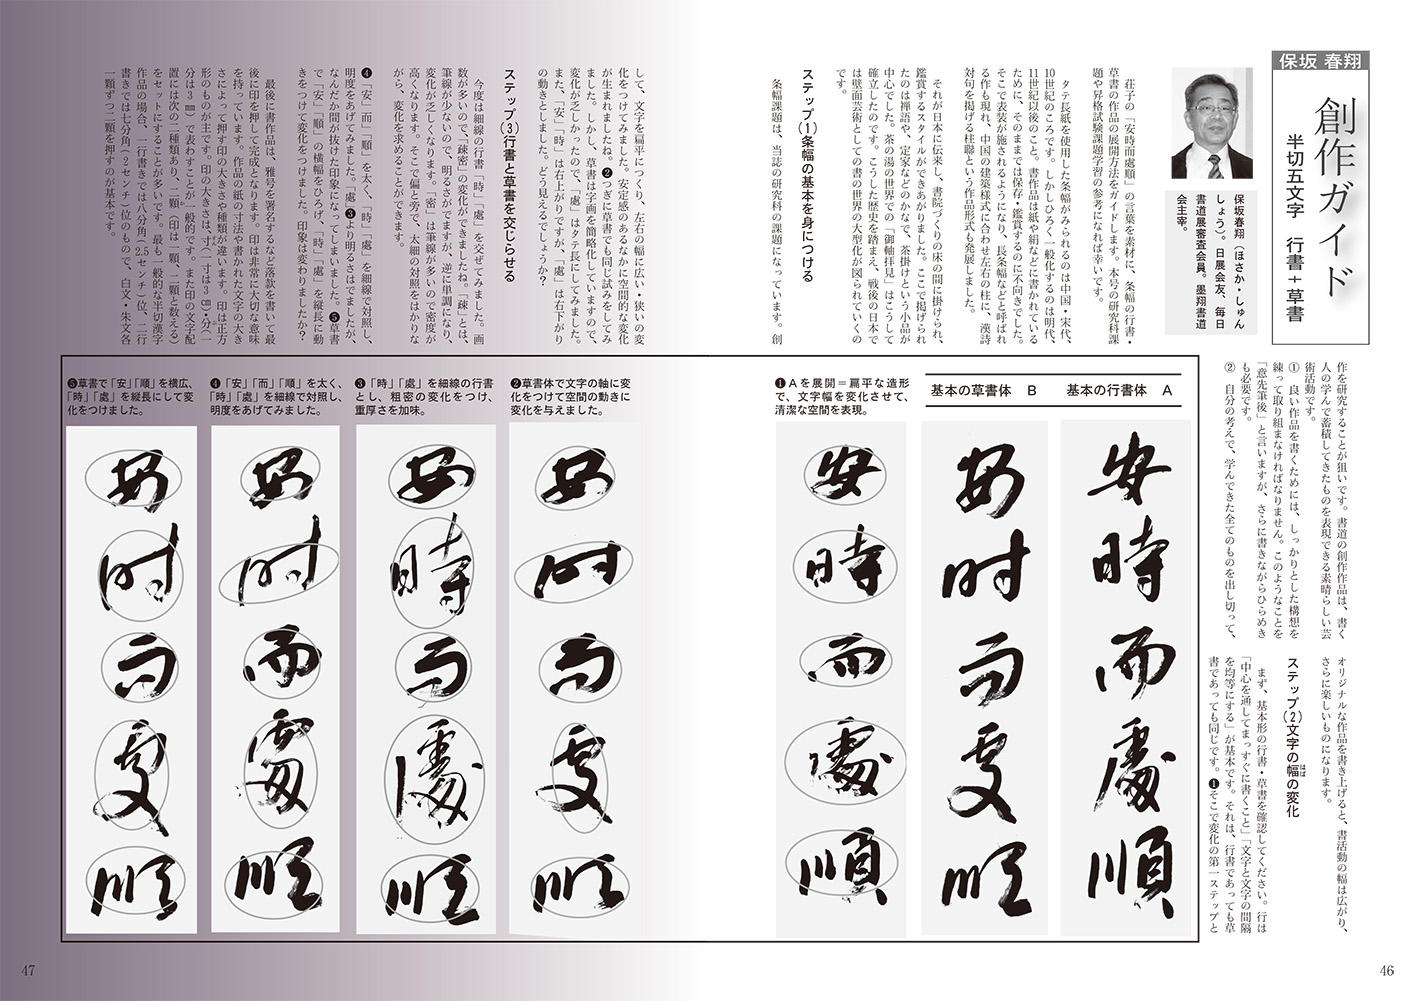 保坂 春翔
創作ガイド
半切五文字 行書+草書
保坂春翔（ほさか・しゅん
しょう）。日展会友、毎日
書道展審査会員。墨翔書道
会主宰。
荘子の「安時而處順」の言葉を素材に、条幅の行書・
草書の作品の展開方法をガイドします。本号の研究科課
題や昇格試験課題学習の参考になれば幸いです。
タテ長紙を使用した条幅がみられるのは中国・宋代、
10世紀のころです。しかしひろく一般化するのは明代、
11世紀以後のこと。書作品は紙や絹などに書かれている
ために、そのままでは保存・鑑賞するのに不向きでした。
そこで表装が施されるようになり、長条幅などと呼ばれ
る作も現れ、中国の建築様式に合わせ左右の柱に、漢詩
対句を掲げる柱聯という作品形式も発展しました。
それが日本に伝来し、書院づくりの床の間に掛けられ、
鑑賞するスタイルができあがりました。ここで掲げられ
たのは禅語や、定家などのかなで、茶掛けという小品が
中心でした。茶の湯の世界での「御軸拝見」はこうして
確立したのです。こうした歴史を踏まえ、戦後の日本で
は壁面芸術としての書の世界の大型化が図られていくの
です。
ステップ(1)条幅の基本を身につける
条幅課題は、当誌の研究科の課題になっています。創
作を研究することが狙いです。書道の創作作品は、書く
人の学んで蓄積してきたものを表現できる素晴らしい芸
術活動です。
① 良い作品を書くためには、しっかりとした構想を
練って取り組まなければなりません。このようなことを
「意先筆後」と言いますが、さらに書きながらひらめき
も必要です。
② 自分の考えで、学んできた全てのものを出し切って、
オリジナルな作品を書き上げると、書活動の幅は広がり、
さらに楽しいものになります。
ステップ(2)文字の幅の変化
はば
まず、基本形の行書・草書を確認してください。行は
「中心を通してまっすぐに書くこと」「文字と文字の間隔
を均等にする」が基本です。それは、行書であっても草
書であっても同じです。❶そこで変化の第一ステップと
して、文字を扁平につくり、左右の幅に広い・狭いの変
化をつけてみました。安定感のあるなかに空間的な変化
が生まれましたね。❷つぎに草書でも同じ試みをしてみ
ました。しかし、草書は字画を簡略化していますので、
変化が乏しかったので、「處」はタテ長にしてみました。
また、「安」「時」は右上がりですが、「處」は右下がり
の動きとしました。どう見えるでしょうか？
ステップ(3)行書と草書を交じらせる
今度は細線の行書「時」「處」を交ぜてみました。画
数が多いので、「疎密」の変化ができましたね。「疎」とは、
筆線が少ないので、明るさがでますが、逆に単調になり、
変化が乏しくなります。「密」は筆線が多いので密度が
高くなります。そこで偏と旁で、太細の対照をはかりな
がら、変化を求めることができます。
❹「安」「而」「順」を太く、「時」「處」を細線で対照し、
明度をあげてみました。「處」❸より明るさはでましたが、
なんだか間が抜けた印象になってしまいました。❺草書
で「安」「順」の横幅をひろげ、「時」「處」を縦長に動
きをつけて変化をつけました。印象は変わりましたか？
最後に書作品は、雅号を署名するなど落款を書いて最
後に印を押して完成となります。印は非常に大切な意味
を持っています。作品の紙の寸法や書かれた文字の大き
さによって押す印の大きさや種類が違います。印は正方
形のものが主です。印の大きさは、寸（一寸は3㎝）・分（一
分は3㎜）で表わすことが一般的です。また印の文字配
置には次の二種類あり、二顆（印は一顆、二顆と数える）
をセットにすることが多いです。最も一般的な半切漢字
作品の場合、一行書きでは八分角（2.5センチ）位、二行
書きでは七分角（2センチ）位のもので、白文・朱文各
一顆ずつ二顆を押すのが基本です。
基本の行書体 A
安
時
而
處
順
基本の草書体 B
安
時
而
處
順
❶Aを展開＝扁平な造形
で、文字幅を変化させて、
清潔な空間を表現。
安
時
而
處
順
❷草書体で文字の軸に変
化をつけて空間の動きに
変化を与えました。
安
時
而
處
順
❸「時」「處」を細線の行書
とし、粗密の変化をつけ、
重厚さを加味。
安
時
而
處
順
❹「安」「而」「順」を太く、
「時」「處」を細線で対照し、
明度をあげてみました。
安
時
而
處
順
❺草書で「安」「順」を横広、
「時」「處」を縦長にして変
化をつけました。
安
時
而
處
順
47
46